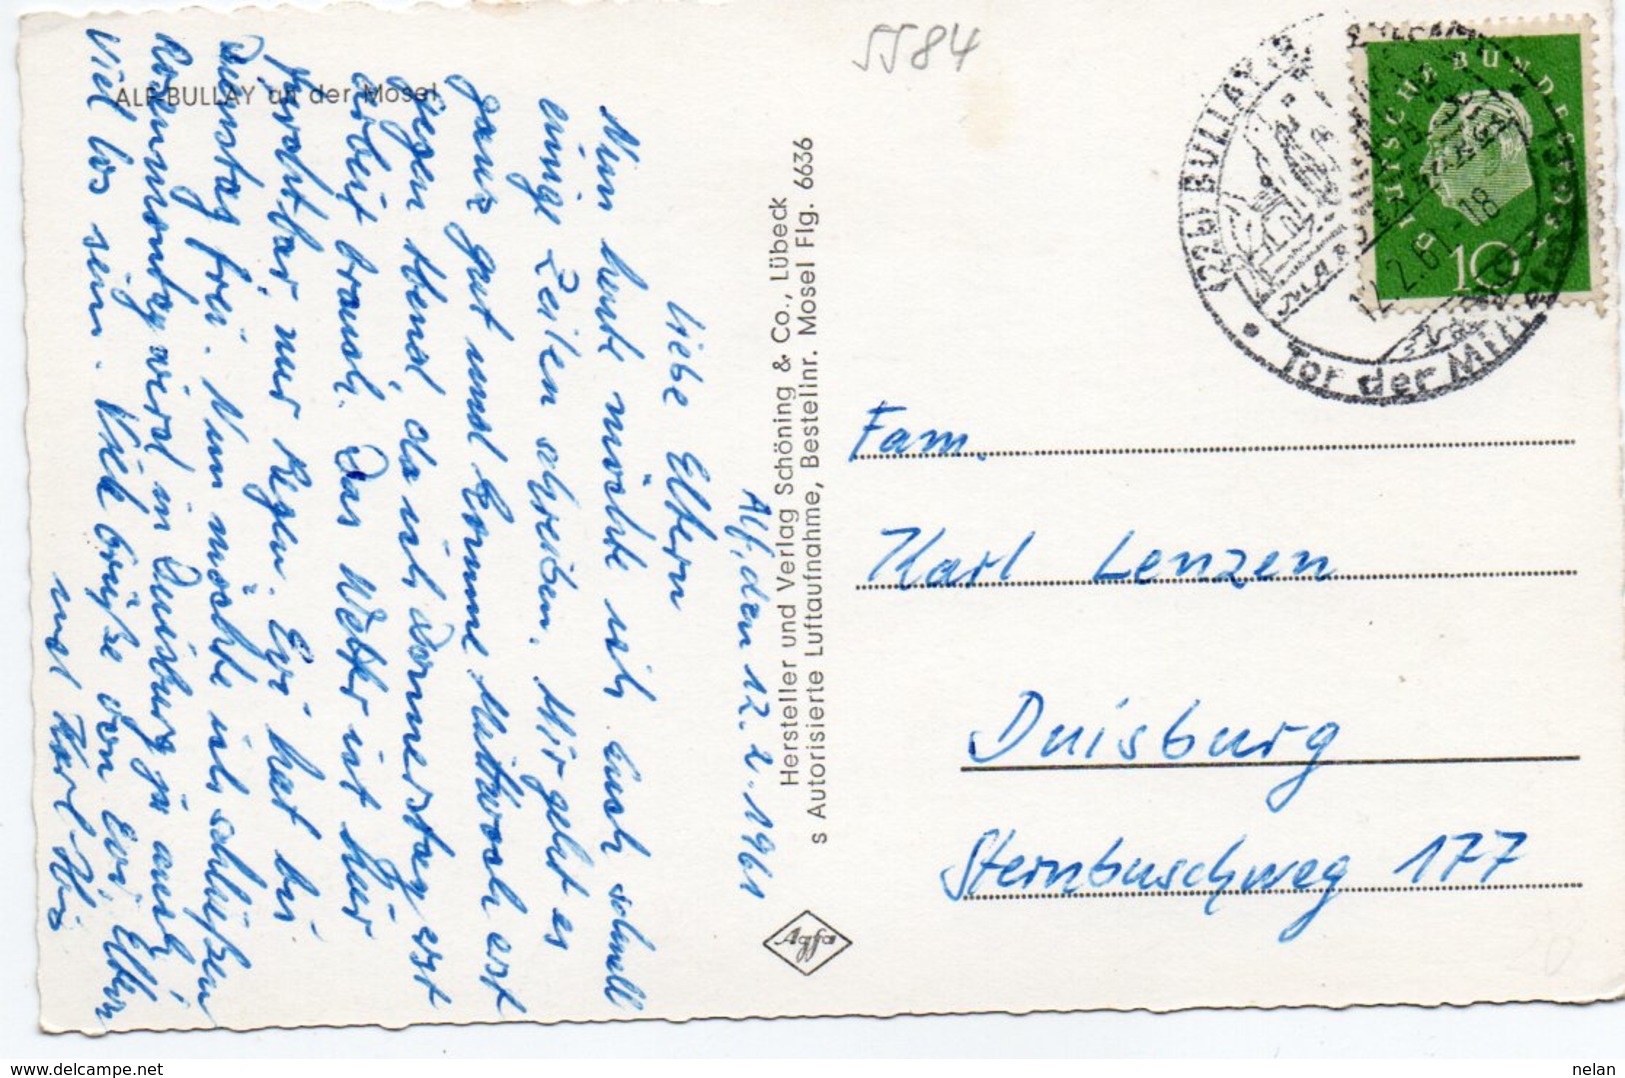 5584
ALF-BULLAY an der Mosel
Alf, den 12.2.1961
Liebe Eltern
Nun heute möchte ich Euch schnell
einige Zeilen schreiben. Mir geht es
ganz gut und komme Mittwoch erst
gegen Abend, da ich Donnerstag erst
Arbeit brauch. Das Wetter ist hier
furchtbar, nur Regen. Evi hat bis
Dienstag frei. Nun möchte ich schließen
Rosenmontag wird in Duisburg ja auch
viel los sein. Viele Grüße von Evi, Eltern
und Karl-Hz
Hersteller und Verlag Schöning & Co., Lübeck
s Autorisierte Luftaufnahme, Bestellnr. Mosel Flg. 6636
Agfa
DEUTSCHE BUNDESPOST
10
BULLAY
12.2.61-18
Tor der
Fam.
Karl Lenzen
Duisburg
Sternbuschweg 177
nelan